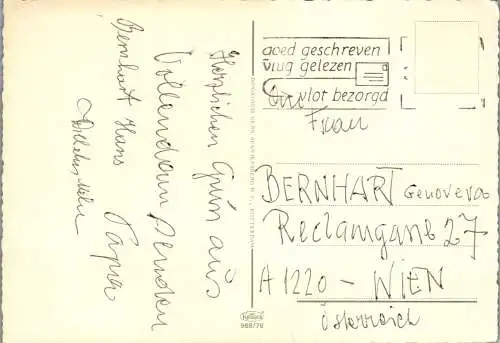 Herzlichen Gruß aus
Vollendam senden
Bernhart Hans Papa
goed geschreven
vlug gelezen
vlot bezorgd
Frau
BERNHART Genoveva
Reclamgasse 27
A 1220 - WIEN
Österreich
968/76